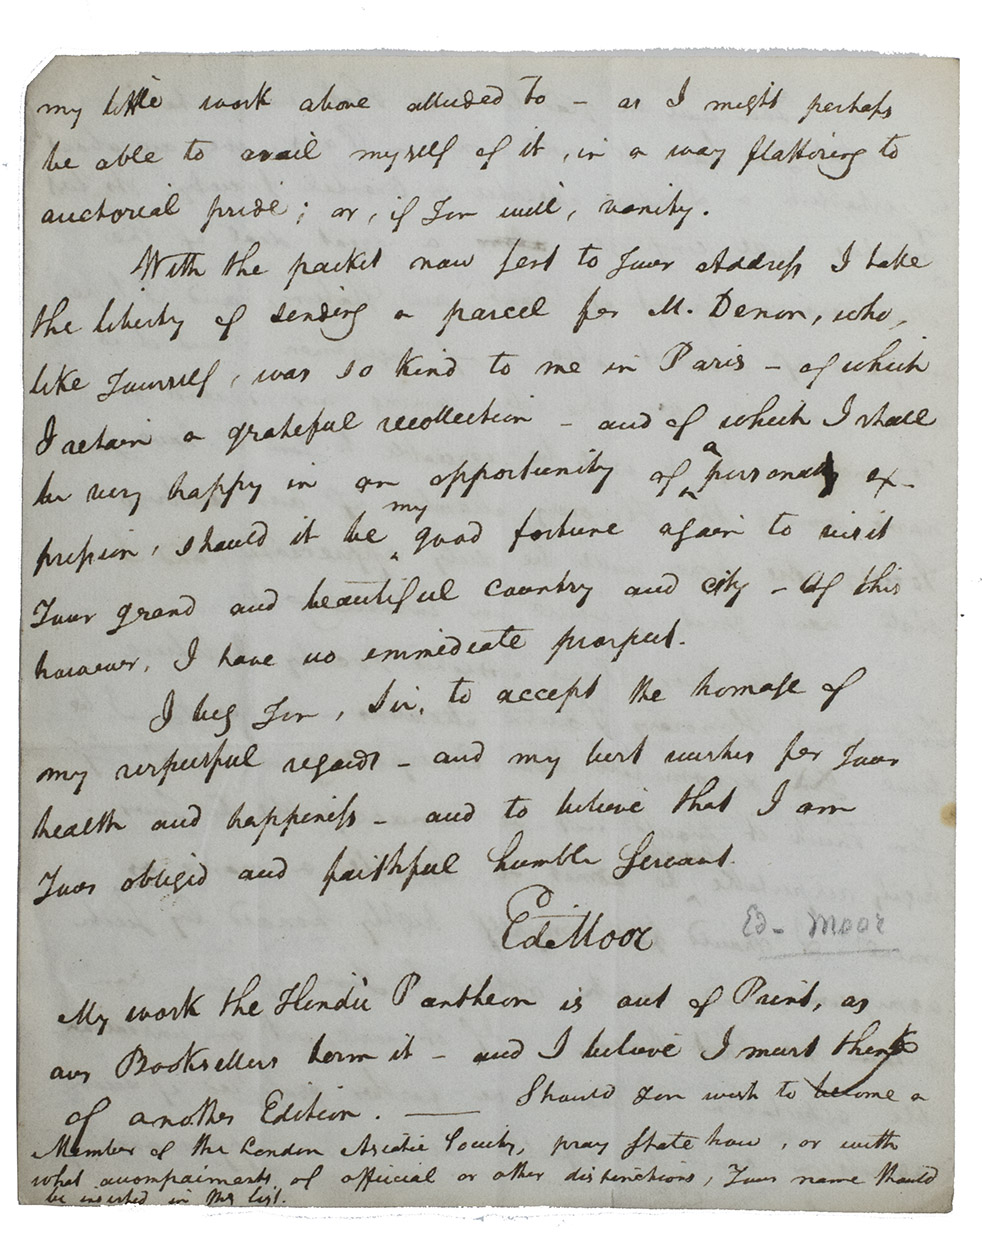 my little work above alluded to – as I might perhaps
be able to avail myself of it, in a way flattering to
auctorial pride; or, if You will, vanity.
With the packet now sent to Your Address I take
the liberty of sending a parcel for M. Denon, who,
like Yourself, was so kind to me in Paris – of which
I retain a grateful recollection – and of which I shall
be very happy in an opportunity of a personal ex-
pression, should it be my good fortune again to visit
Your grand and beautiful country and city – Of this
however, I have no immediate prospect.
I beg You, Sir, to accept the homage of
my respectful regards – and my best wishes for Your
health and happiness – and to believe that I am
Your obliged and faithful humble Servant.
Ed Moor
Ed – Moor
My work the Hindu Pantheon is out of Print, as
our Booksellers term it – and I believe I must think
of another Edition. — Should You wish to become a
Member of the London Asiatic Society, pray state how, or with
what accompaiments of official or other distinctions, Your name should
be inserted in the list.